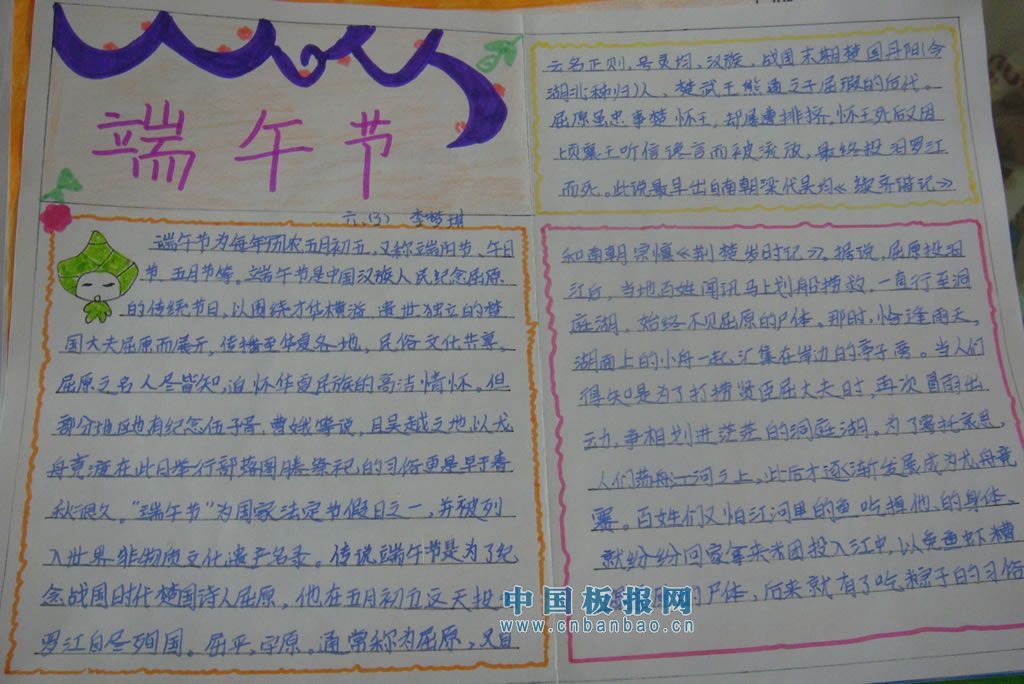 端午节
六、(3) 李梦琪
端午节为每年历农五月初五,又称端阳节、午日
节、五月节等。端午节是中国汉族人民纪念屈原
的传统节日,以围绕才华横溢、遗世独立的楚
国大夫屈原而展开,传播至华夏各地,民俗文化共享,
屈原之名人尽皆知,追怀华夏民族的高洁情怀。但
部分地区也有纪念伍子胥、曹娥等说,且吴越之地以龙
舟竞渡在此日举行部落图腾祭祀的习俗更是早于春
秋很久。"端午节"为国家法定节假日之一,并被列
入世界非物质文化遗产名录。传说端午节是为了纪
念战国时代楚国诗人屈原,他在五月初五这天投
罗江自尽殉国。屈平,字原。通常称为屈原,又自
云名正则,号灵均,汉族,战国末期楚国丹阳(今
湖北秭归)人,楚武王熊通之子屈瑕的后代。
屈原虽忠事楚怀王,却屡遭排挤,怀王死后又因
顷襄王听信谗言而被流放,最终投汨罗江
而死。此说最早出自南朝梁代吴均《续齐谐记》
和南朝宗懔《荆楚岁时记》。据说,屈原投汨
江后,当地百姓闻讯马上划船捞救,一直行至洞
庭湖,始终不见屈原的尸体。那时,恰逢雨天,
湖面上的小舟一起汇集在岸边的亭子旁。当人们
得知是为了打捞贤臣屈大夫时,再次冒雨出
动,争相划进茫茫的洞庭湖。为了寄托哀思,
人们荡舟江河之上,此后才逐渐发展成为龙舟竞
赛。百姓们又怕江河里的鱼吃掉他的身体,
就纷纷回家拿来米团投入江中,以免鱼虾糟
尸体,后来就有了吃粽子的习俗
中国板报网
www.cnbanbao.cn